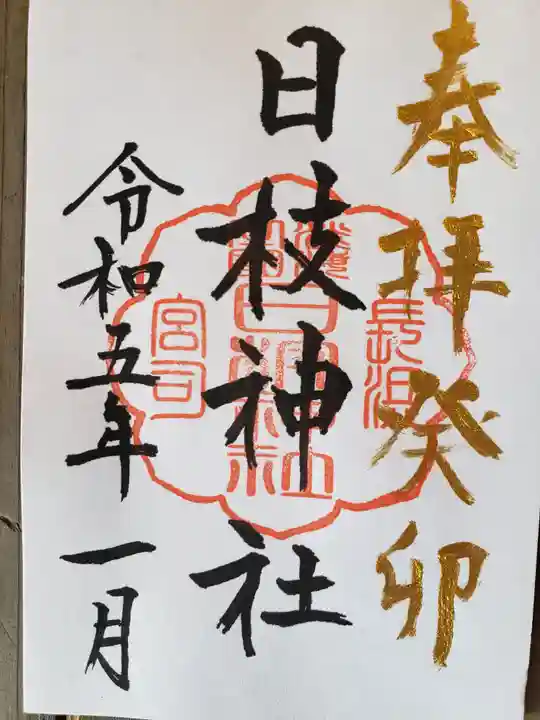 奉拝癸卯
日枝神社
令和五年一月
長沼
宮司